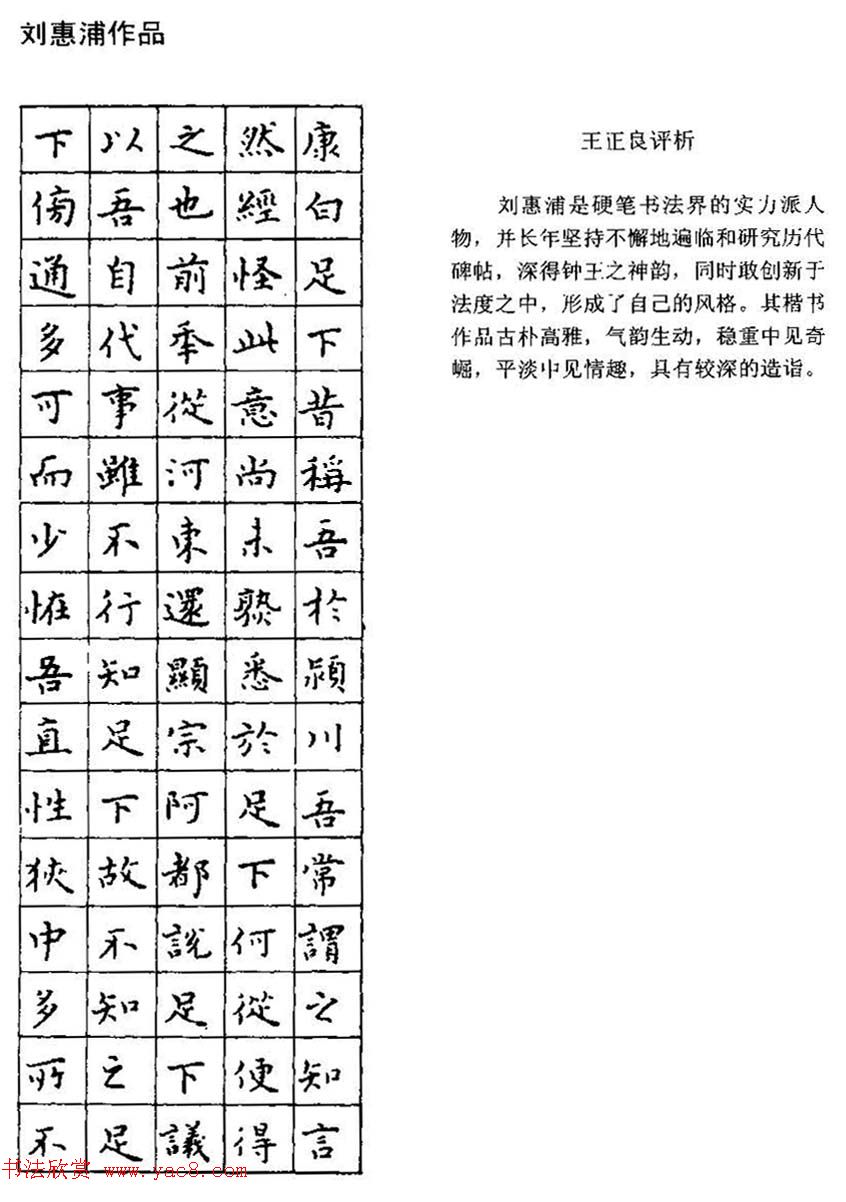 刘惠浦作品
康白足下昔稱吾於潁川吾常謂之知言
然經怪此意尚未熟悉於足下何從便得
之也前年從河東還顯宗阿都說足下議
以吾自代事雖不行知足下故不知之足
下傍通多可而少怪吾直性狹中多所不
王正良评析
刘惠浦是硬笔书法界的实力派人
物，并长年坚持不懈地遍临和研究历代
碑帖，深得钟王之神韵，同时敢创新于
法度之中，形成了自己的风格。其楷书
作品古朴高雅，气韵生动，稳重中见奇
崛，平淡中见情趣，具有较深的造诣。
书法欣赏 www.yac8.com